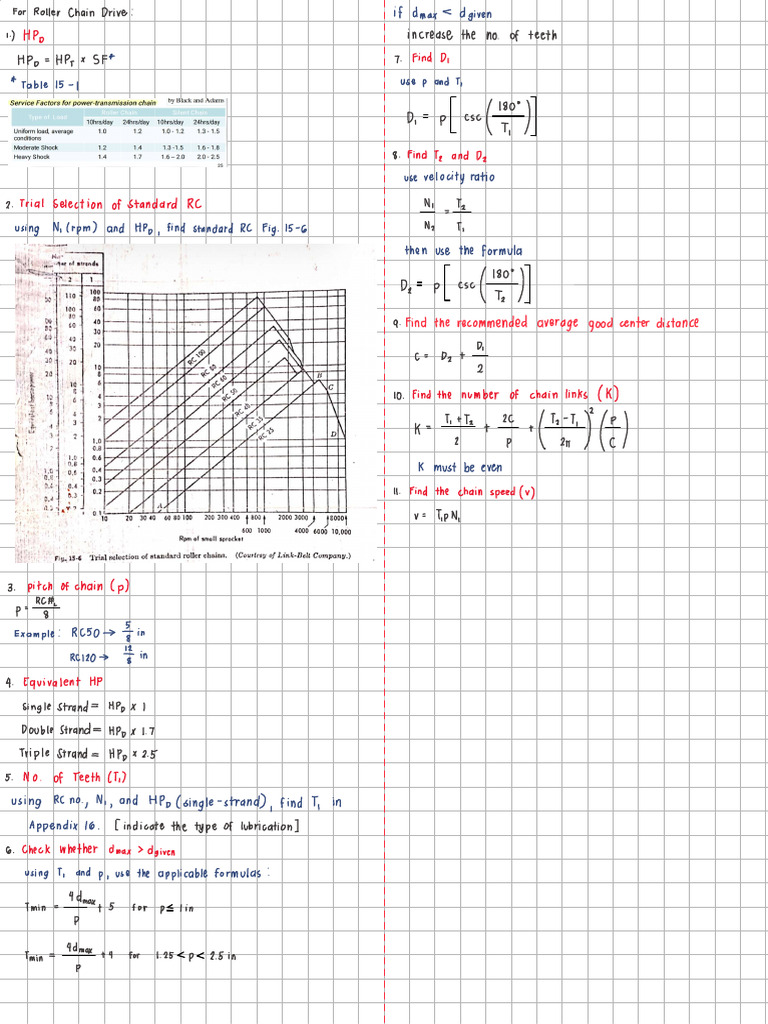 For Roller Chain Drive:
1.) HP_D
HP_D = HP_T × SF*
* Table 15-1
Service Factors for power-transmission chain by Black and Adams
Type of Load Roller Chain Silent Chain
10hrs/day 24hrs/day 10hrs/day 24hrs/day
Uniform load, average conditions 1.0 1.2 1.0 - 1.2 1.3 - 1.5
Moderate Shock 1.2 1.4 1.3 -1.5 1.6 - 1.8
Heavy Shock 1.4 1.7 1.6 – 2.0 2.0 - 2.5
2. Trial Selection of Standard RC
using N₁ (rpm) and HP_D, find standard RC Fig. 15-6
of strands
2 1
110 100
80 80
60
50 40
40 30
30 20
20
10 10
8 8
6 6
4
3
2 2
1.0 1.0
0.8 0.6
0.6 0.4
0.4 0.3
0.2
0.1
RC 100
RC 80
RC 60
RC 50
RC 40
RC 35
RC 25
A
B
C
D
10 20 30 40 60 80 100 200 300 400 800 2000 3000 8000
600 1000 4000 6000 10,000
Rpm of small sprocket
Fig. 15-6 Trial selection of standard roller chains. (Courtesy of Link-Belt Company.)
3. pitch of chain (p)
p = RC#/8
Example: RC50 → 5/8 in
RC120 → 12/8 in
4. Equivalent HP
Single Strand = HP_D × 1
Double Strand = HP_D × 1.7
Triple Strand = HP_D × 2.5
5. No. of Teeth (T₁)
using RC no., N₁, and HP_D (single-strand), find T₁ in
Appendix 16. [indicate the type of lubrication]
6. Check whether d_max > d_given
using T₁ and p, use the applicable formulas:
T_min = 4d_max/p + 5 for p ≤ 1 in
T_min = 4d_max/p + 4 for 1.25 < p < 2.5 in
if d_max < d_given
increase the no. of teeth
7. Find D₁
use p and T₁
D₁ = p [csc (180°/T₁)]
8. Find T₂ and D₂
use velocity ratio
N₁/N₂ = T₂/T₁
then use the formula
D₂ = p [csc (180°/T₂)]
9. Find the recommended average good center distance
C = D₂ + D₁/2
10. Find the number of chain links (K)
K = (T₁ + T₂)/2 + 2C/p + ((T₂ - T₁)/2π)² (p/C)
K must be even
11. Find the chain speed (v)
v = T₁pN₁